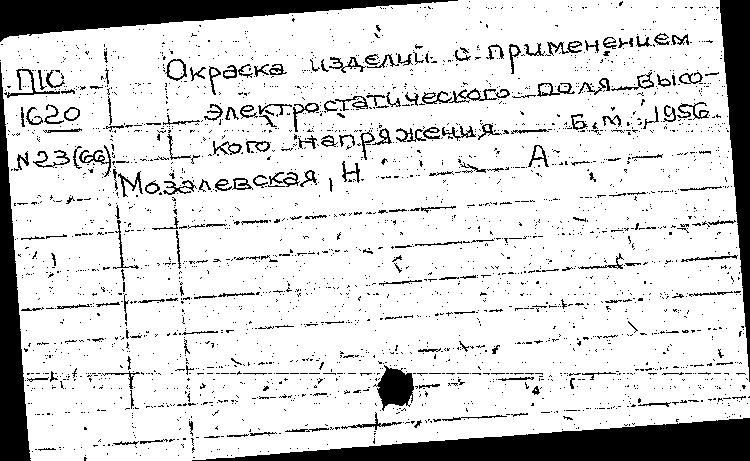 П10 Окраска изделий с применением
1620 электростатического поля высо-
N23(66) кого напряжения Б.м., 1956
Мозалевская, Н А